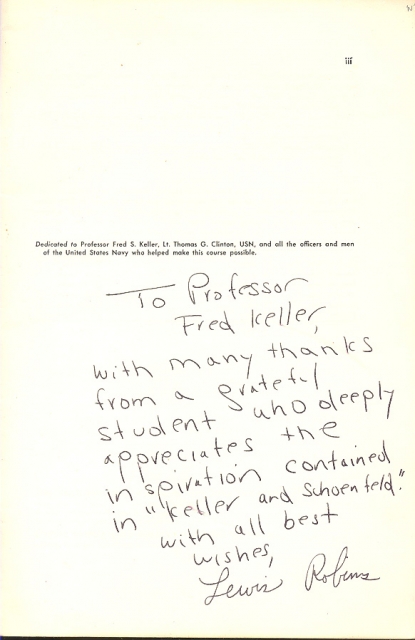 iii
Dedicated to Professor Fred S. Keller, Lt. Thomas G. Clinton, USN, and all the officers and men
of the United States Navy who helped make this course possible.
To Professor
Fred Keller,
with many thanks
from a grateful
student who deeply
appreciates the
inspiration contained
in "Keller and Schoenfeld."
with all best
wishes,
Lewis Robins